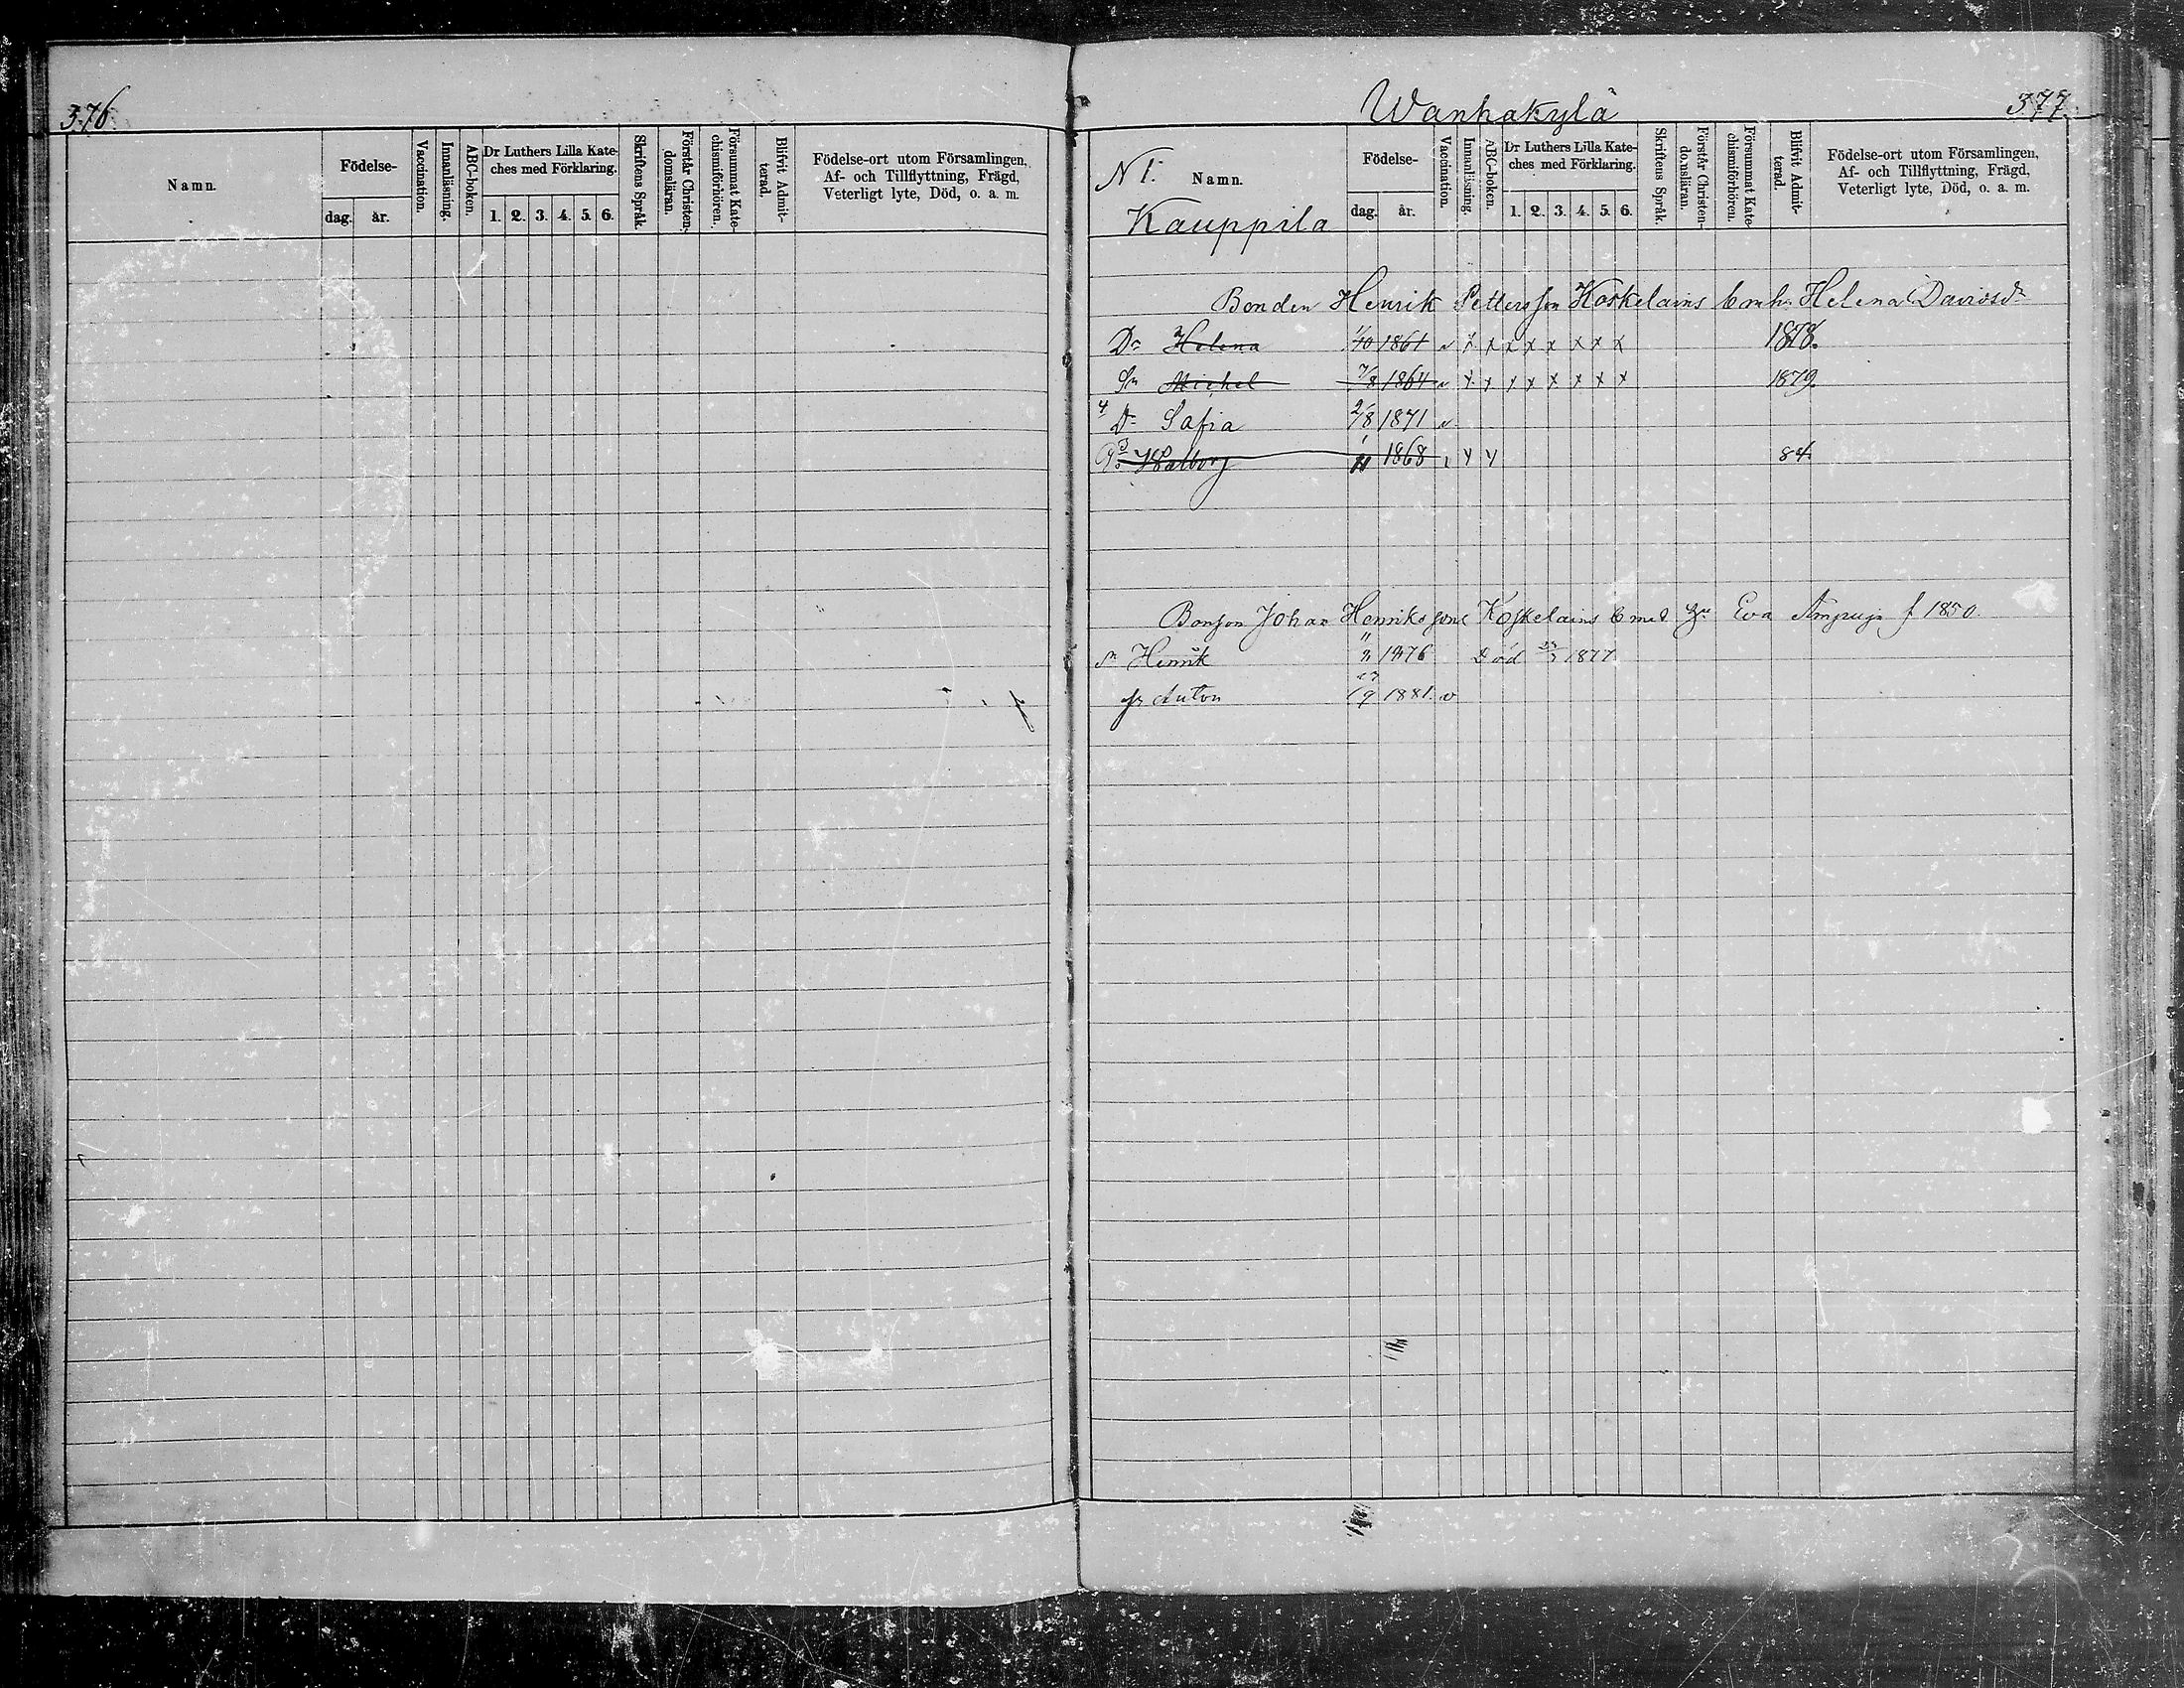 376
Namn.
Födelse-
dag.
år.
Vaccination.
Innanläsning.
ABC-boken.
Dr Luthers Lilla Kate-
ches med Förklaring.
1. 2. 3. 4. 5. 6.
Skriftens Språk.
Förstår Christen-
domsläran.
Försummat Kate-
chismiförhören.
Blifvit Admit-
terad.
Födelse-ort utom Församlingen,
Af- och Tillflyttning, Frägd,
Veterligt lyte, Död, o. a. m.
Wanhakylä
377.
N 1.
Namn.
Kauppila
Födelse-
dag.
år.
Vaccination.
Innanläsning.
ABC-boken.
Dr Luthers Lilla Kate-
ches med Förklaring.
1. 2. 3. 4. 5. 6.
Skriftens Språk.
Förstår Christen-
domsläran.
Försummat Kate-
chismiförhören.
Blifvit Admit-
terad.
Födelse-ort utom Församlingen,
Af- och Tillflyttning, Frägd,
Veterligt lyte, Död, o. a. m.
Bonden Henrik Pettersson Koskelains b m h: Helena Davidsdr
Dr Helena 1/10 1861 v x x x x x x x x 1878.
Sn Michel 7/8 1864 v x x x x x x x x 1879.
4 Dr Safia 2/8 1871 v
3 Walborg 1868 x x 84.
Bonson Johan Henrikssons Koskelains b med Eva f 1850.
sn Henrik 1876 Död 1877.
sn Anton 1881. v